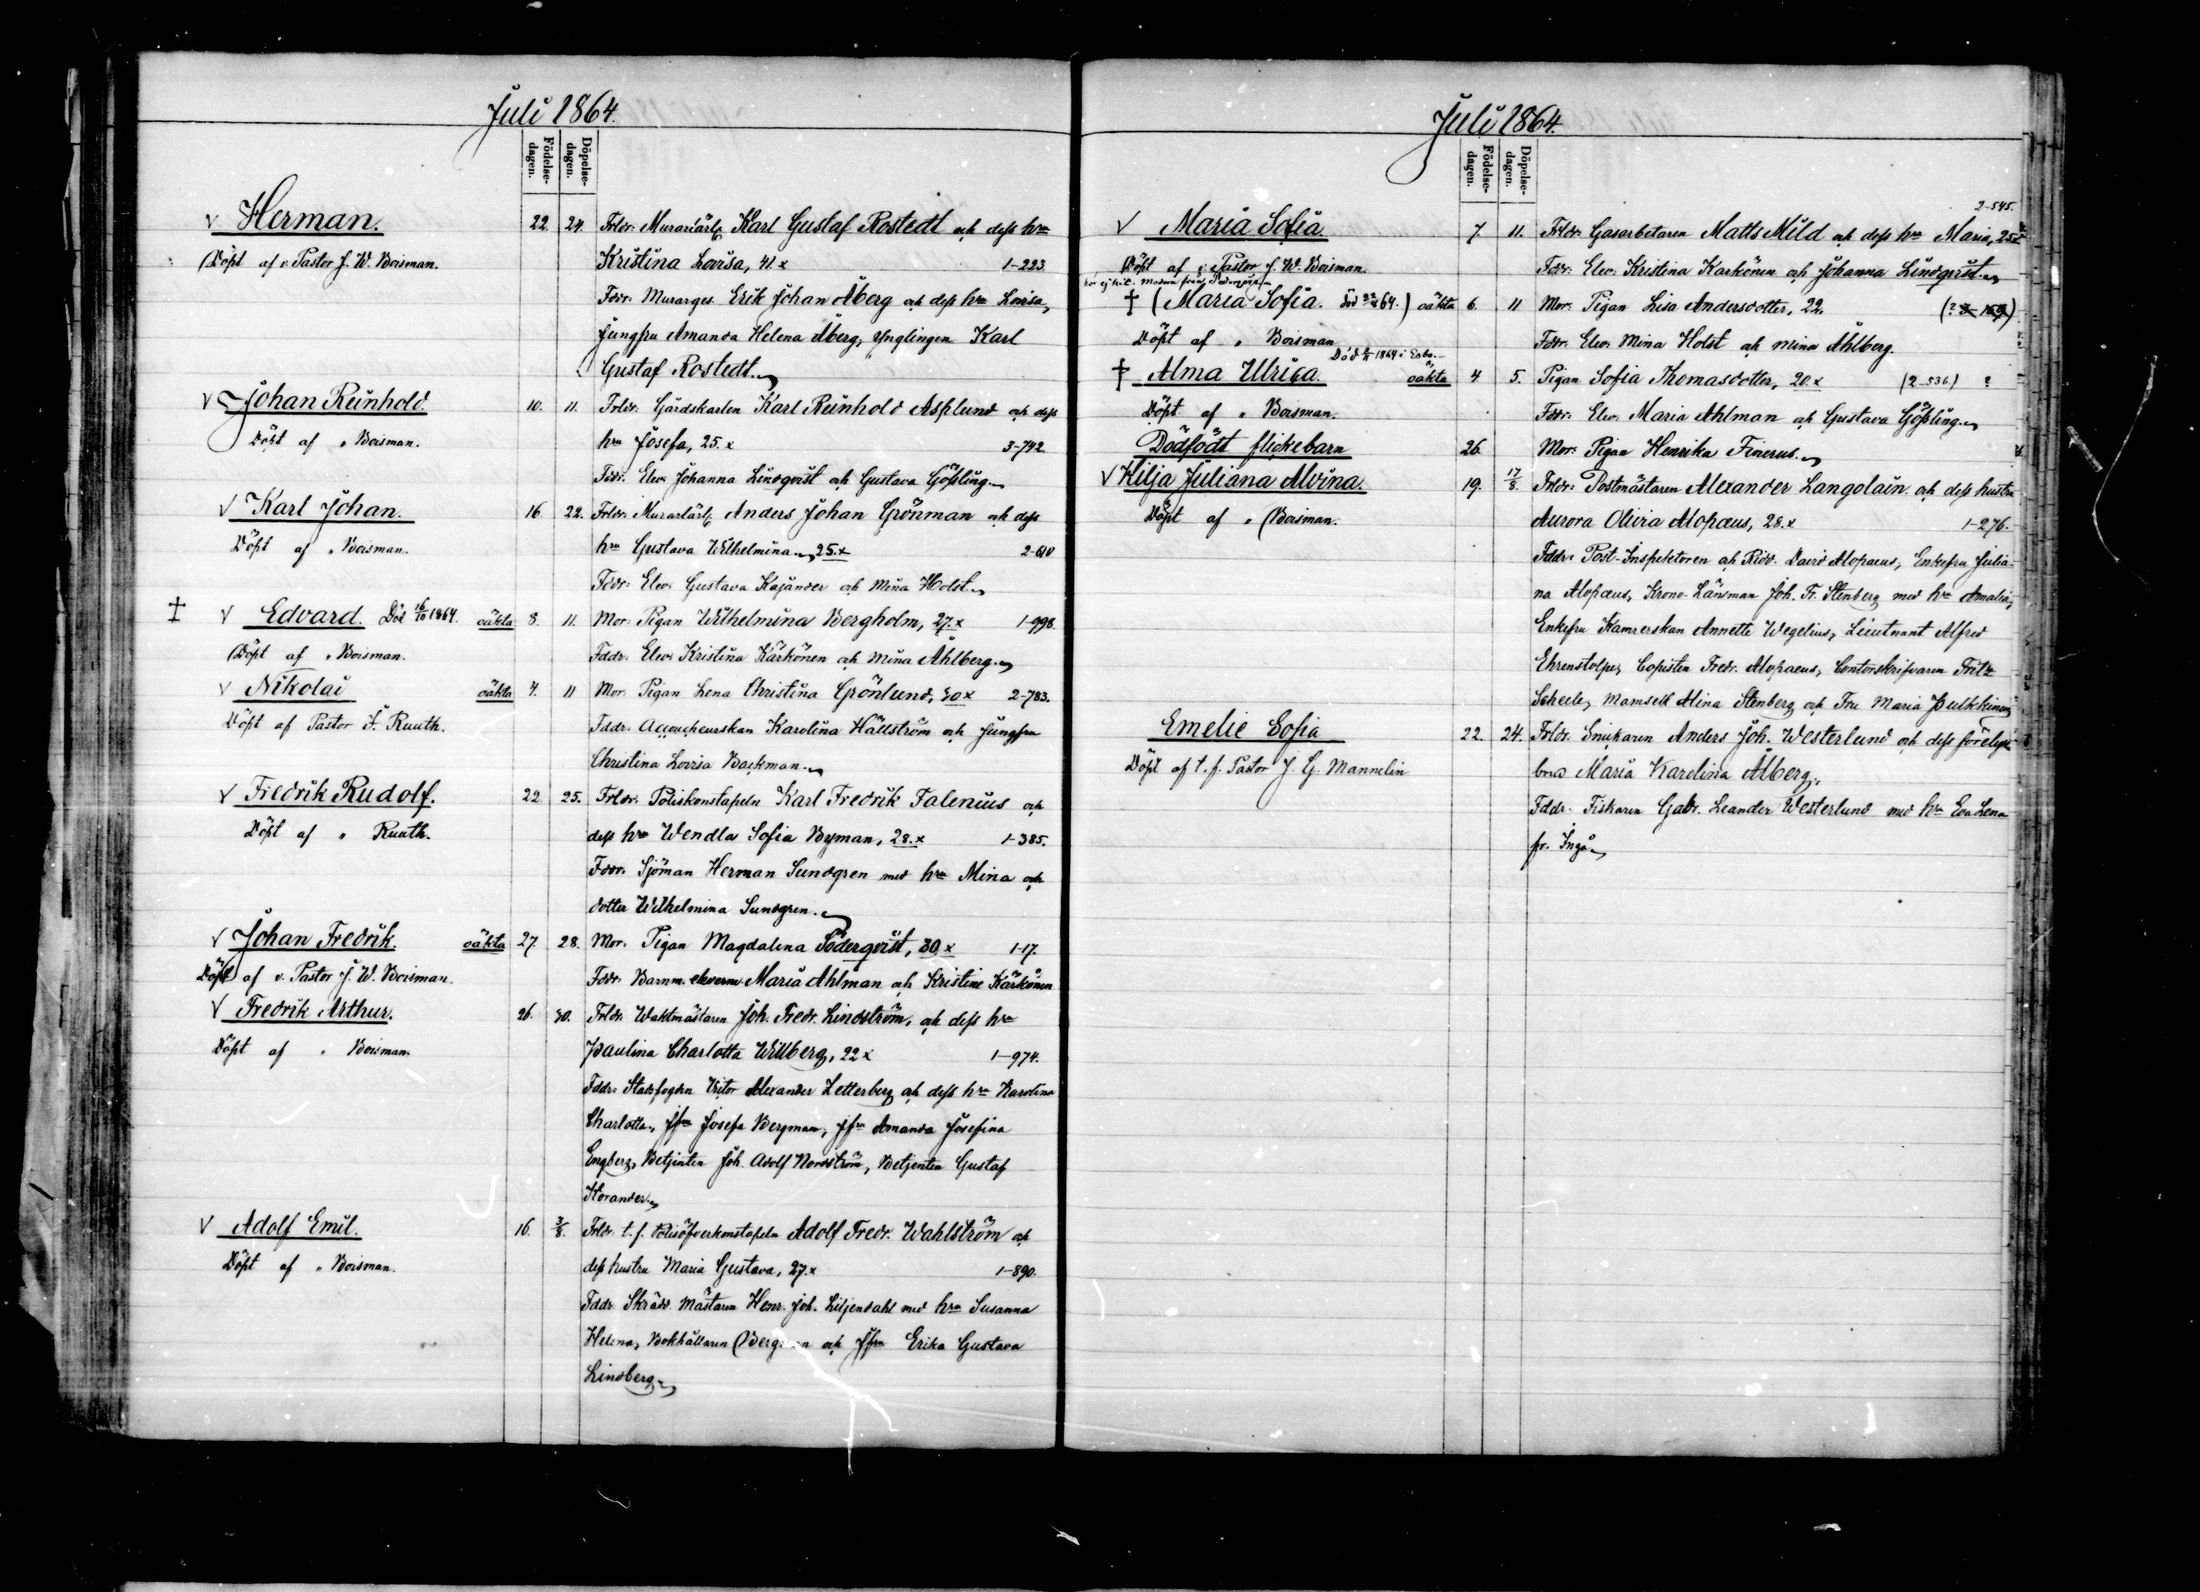 Juli 1864.
Födelse-dagen.
Döpelse-dagen.
Herman. 22. 24. Frldr. Murarlärl. Karl Gustaf Rostedt och dess hru
Döpt af v. Pastor J. W. Boisman. Kristina Lovisa, 41. x 1-223
Fddr. Murarges. Erik Johan Åberg och dess hru Lovisa,
Jungfru Amanda Helena Åberg, Ynglingen Karl
Gustaf Rostedt.
Johan Reinhold. 10. 11. Frldr. Gårdskarlen Karl Reinhold Asplund och dess
Döpt af " Boisman. hru Josefa, 25. x 3-742
Fddr. Elev. Johanna Lindqvist och Gustava Gössling.
Karl Johan. 16 22. Frldr. Murarlärl. Anders Johan Grönman och dess
Döpt af " Boisman. hru Gustava Wilhelmina, 25. x 2-610
Fddr. Elev. Gustava Kajander och Mina Holst.
Edvard. Död 16/10 1864. oäkta 8. 11. Mor. Pigan Wilhelmina Bergholm, 27. x 1-998.
Döpt af " Boisman. Fddr. Elev. Kristina Kärkönen och Mina Åhlberg.
Nikolai oäkta 4. 11 Mor. Pigan Lena Christina Grönlund, 30 x 2-783.
Döpt af Pastor F. Ruuth. Fddr. Accoucheurskan Karolina Hällström och Jungfru
Christina Lovisa Backman.
Fredrik Rudolf. 22 25. Frldr. Poliskonstapeln Karl Fredrik Falenius och
Döpt af " Ruuth. dess hru Wendla Sofia Byman, 28. x 1-385.
Fddr. Sjöman Herman Sundgren med hru Mina och
dotter Wilhelmina Sundgren.
Johan Fredrik. oäkta 27. 28. Mor. Pigan Magdalena Söderqvist, 30 x 1-17.
Döpt af v. Pastor J. W. Boisman. Fddr. Barnm. eleverna Maria Ahlman och Kristine Kärkönen
Fredrik Arthur. 26. 30. Frldr. Waktmästaren Joh. Fredr. Lindström, och dess hru
Döpt af " Boisman. Paulina Charlotta Willberg, 22 x 1-974.
Fddr. Stadsfogden Victor Alexander Zetterberg och dess hru Karolina
Charlotta, jfru Josefa Bergman, jfru Amanda Josefina
Engberg, Betjenten Joh. Adolf Nordström, Betjenten Gustaf
Storander.
Adolf Emil. 16. 3/8. Frldr. t. f. Polisöfverkonstapeln Adolf Fredr. Wahlström och
Döpt af " Boisman. dess hustru Maria Gustava, 27. x 1-890.
Fddr. Skrädd. mästaren Henr. Joh. Liljendahl med hru Susanna
Helena, Bokhållaren och Jfru Erika Gustava
Lindberg.
Juli 1864.
Födelse-dagen.
Döpelse-dagen.
2-545.
Maria Sofia 7. 11. Frldr. Gasarbetaren Matts Mild och dess hru Maria, 25 x
Döpt af v. Pastor J. W. Boisman. Fddr. Elev. Kristina Karkönen och Johanna Lindqvist.
ej hit. modren från
(Maria Sofia. 64.) oäkta 6. 11 Mor. Pigan Lisa Andersdotter, 22.
Döpt af " Boisman Fddr. Elev. Mina Holst och Mina Åhlberg.
Död 1864 i Esbo.
Alma Ulrica. oäkta 4 5. Pigan Sofia Thomasdotter, 20. x (2-536.) ?
Döpt af " Boisman. Fddr. Elev. Maria Ahlman och Gustava Gössling.
Dödfödt flickebarn 26. Mor. Pigan Henrika Finerus.
Kilja Juliana Alvina. 19. 17/8. Frldr. Postmästaren Alexander Langolain och dess hustru
Döpt af " Boisman. Aurora Olivia Alopæus, 28. x 1-276.
Fddr. Post-Inspektoren och Ridd. David Alopaeus, Enkefru Julia-
na Alopæus, Krono-Länsman Joh. Fr. Stenberg med hru Amalia,
Enkefru Kamrerskan Annette Wegelius, Lieutnant Alfred
Ehrenstolpe, Copisten Fredr. Alopaeus, Contorskrifvaren Fritz
Scheele, Mamsell Alina Stenberg och Fru Maria Pulkkinen
Emelie Sofia 22. 24. Frldr. Snickaren Anders Joh. Westerlund och dess förelof-
Döpt af t. f. Pastor J. G. Mannelin vade Maria Karolina Ålberg.
Fddr. Fiskaren Gabr. Leander Westerlund med hru Eva Lena
fr. Ingå